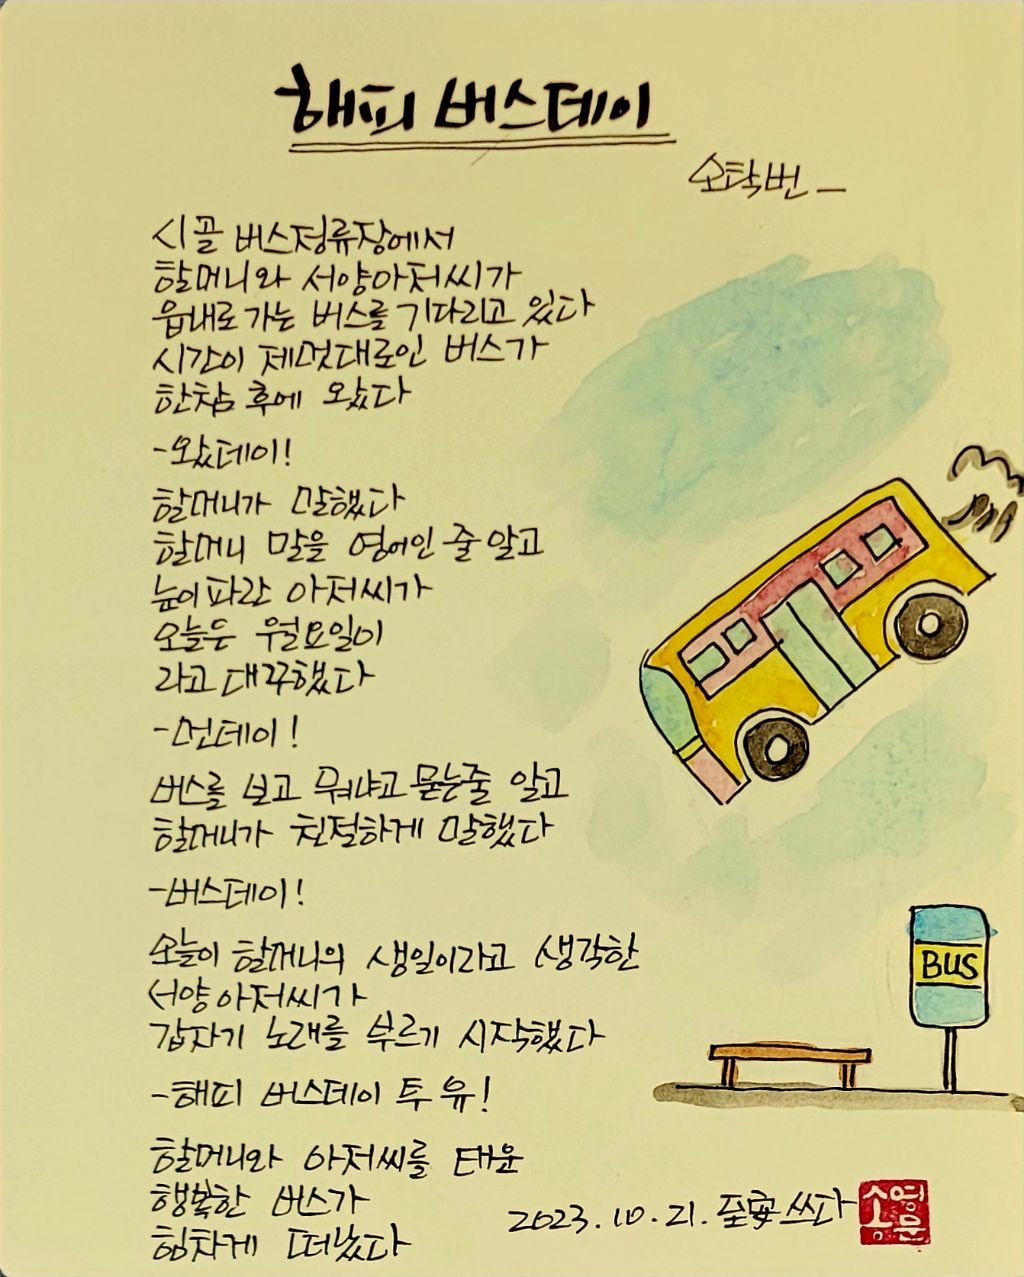 해피 버스데이
오탁번
시골 버스정류장에서
할머니와 서양아저씨가
읍내로 가는 버스를 기다리고 있다
시간이 제멋대로인 버스가
한참 후에 왔다
-왔데이!
할머니가 말했다
할머니 말을 영어인 줄 알고
눈이 파란 아저씨가
오늘은 월요일이
라고 대꾸했다
-먼데이!
버스를 보고 뭐냐고 묻는줄 알고
할머니가 친절하게 말했다
-버스데이!
오늘이 할머니의 생일이라고 생각한
서양아저씨가
갑자기 노래를 부르기 시작했다
-해피 버스데이 투 유!
할머니와 아저씨를 태운
행복한 버스가
힘차게 떠났다
BUS
2023.10.21. 쓰다